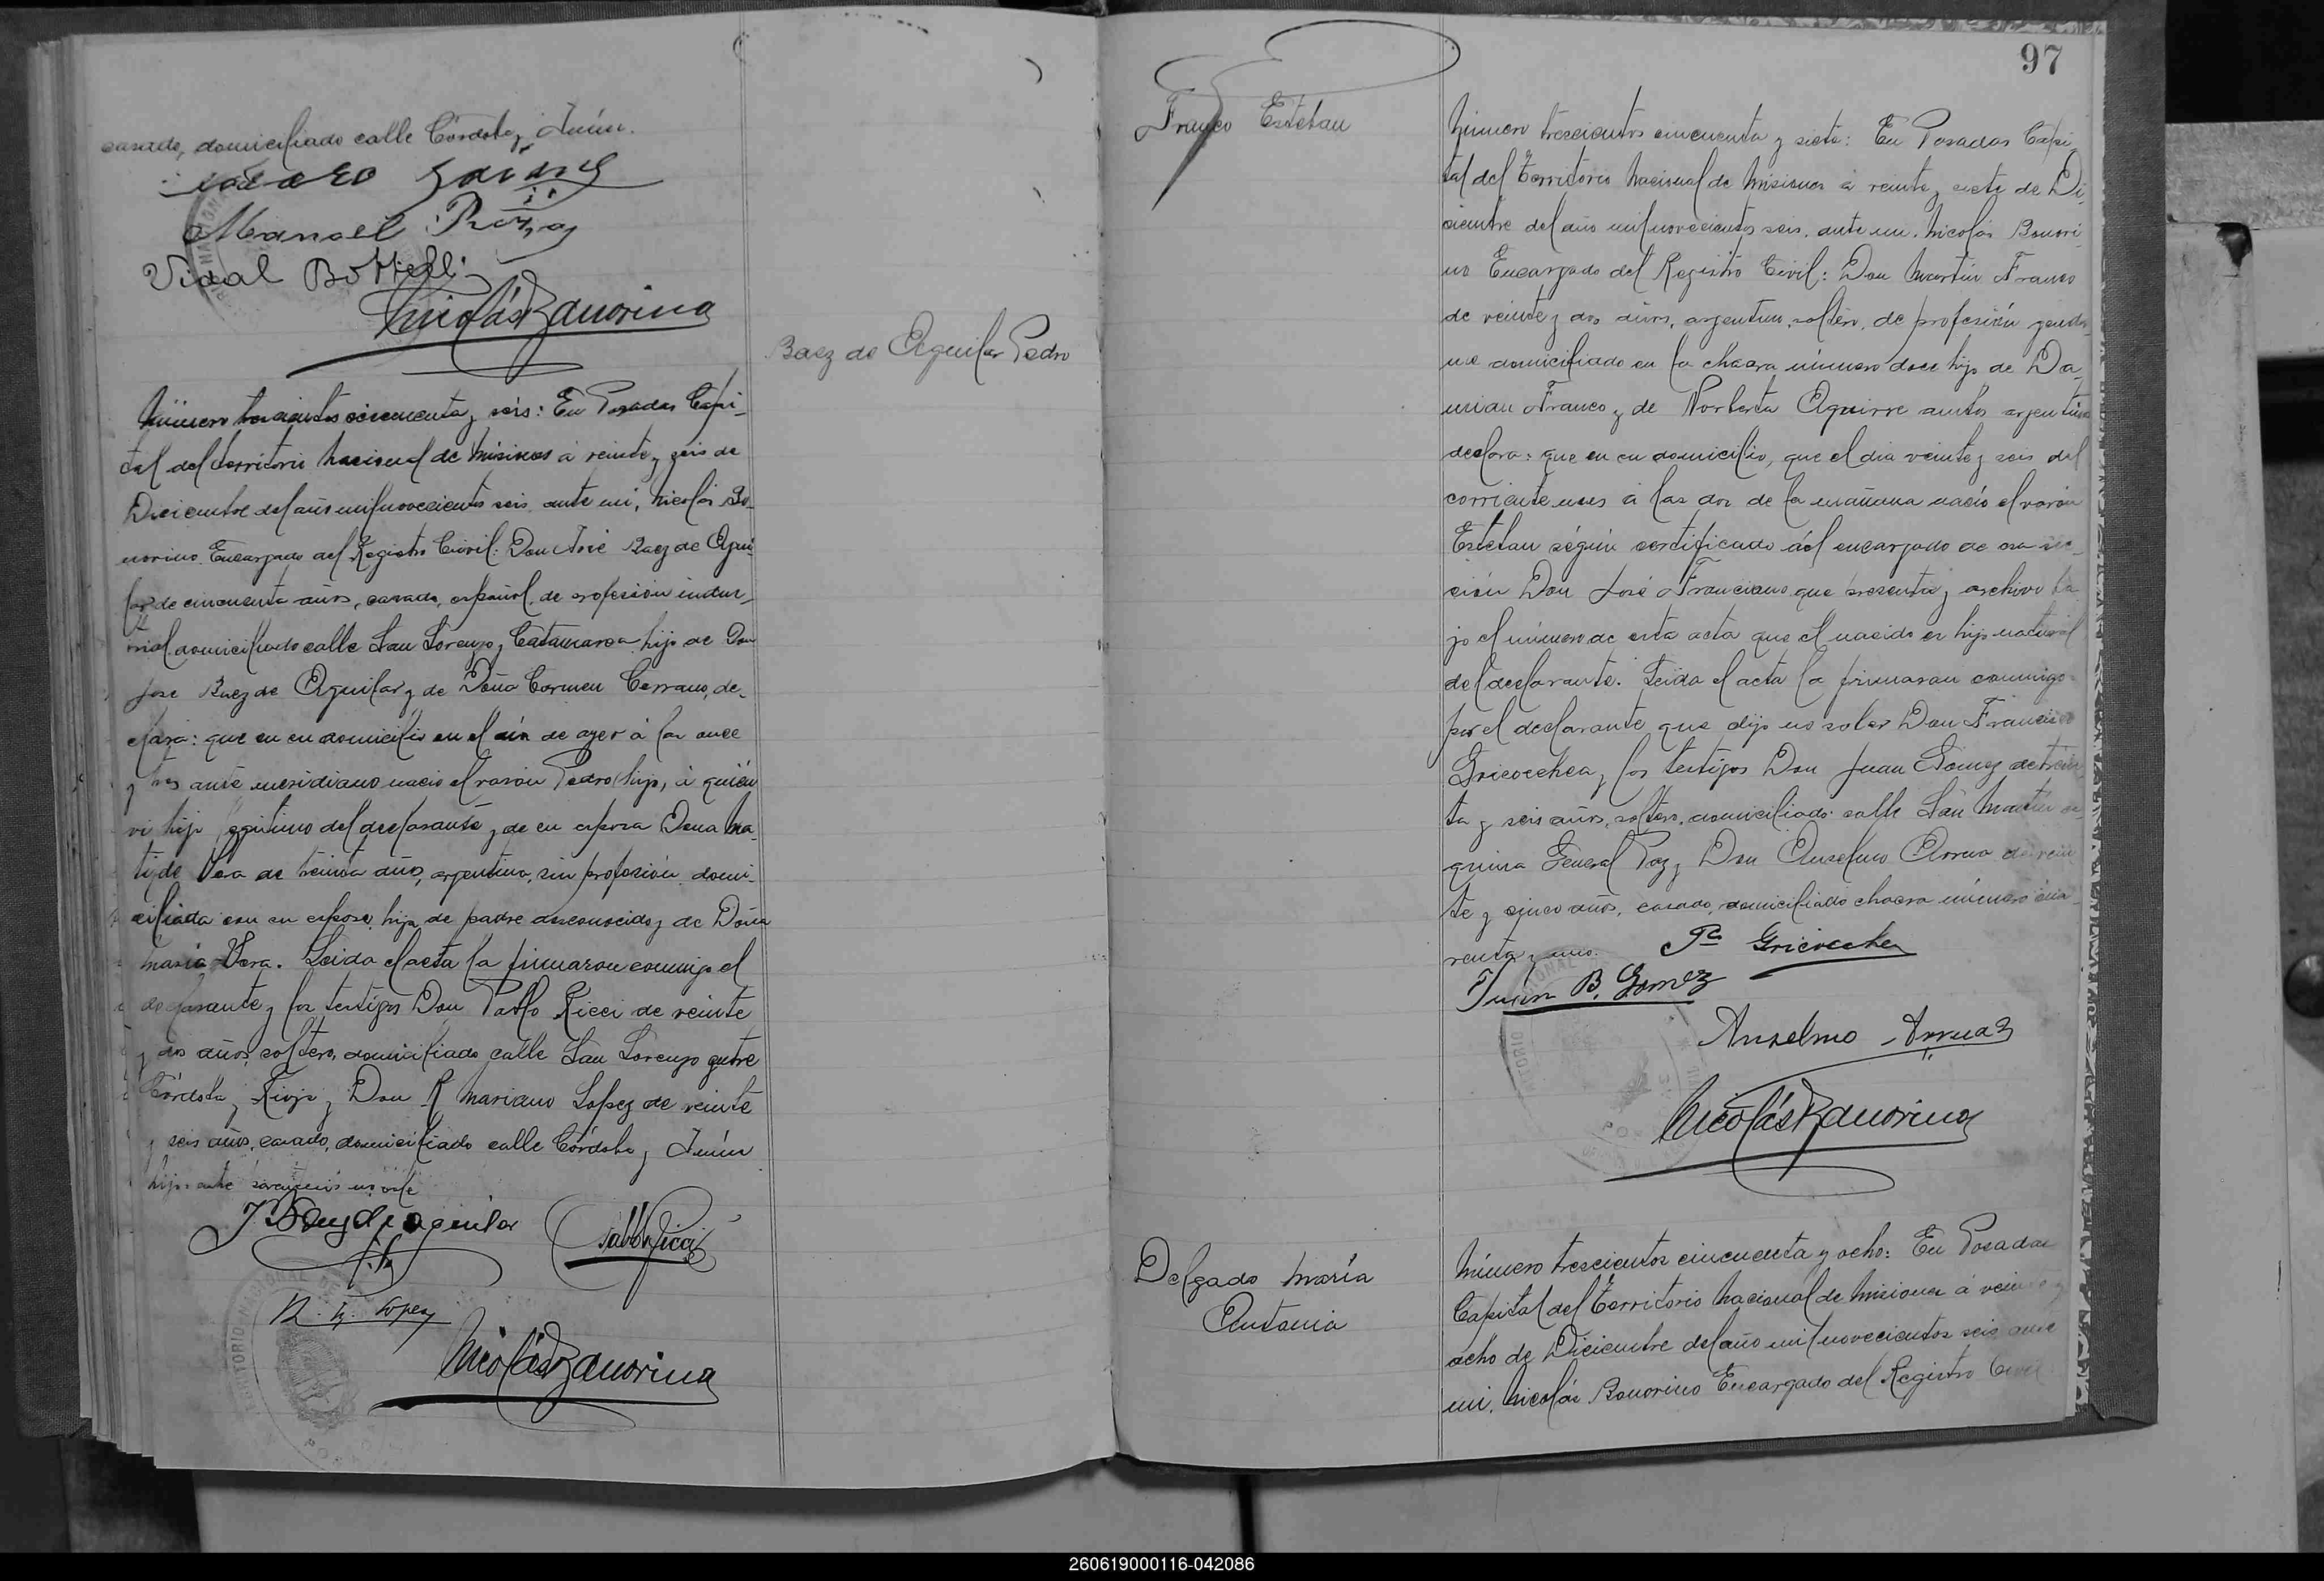 casado, domiciliado calle Córdoba y Junín.
Manoel
Vidal Bottelli
Nicolás Bonorino
Baez de Aguilar Pedro
Número trescientos cincuenta y seis: En Posadas Capi-
tal del territorio Nacional de Misiones á veinte y seis de
Diciembre del año mil novecientos seis, ante mi, Nicolás Bo-
norino Encargado del Registro Civil: Don José Baez de Agui-
lar de cincuenta años, casado, español, de profesión indus-
trial domiciliado calle San Lorenzo y Catamarca hijo de Don
José Baez de Aguilar y de Doña Carmen Cerrano, de-
clara: que en su domicilio en el día de ayer á las once
y tres ante meridiano nació el varón Pedro (hijo, á quién
vi hijo legitimo del declarante y de su esposa Dona Ma-
tilde Vera de treinta años, argentina, sin profesión, domi-
ciliada con su esposo, hija de padre desconocido y de Doña
María Vera. Leida el acta la firmaron conmigo el
declarante y los testigos Don Pablo Ricci de veinte
y dos años, soltero, domiciliado calle San Lorenzo entre
Córdoba y Rioja y Don R Mariano Lopez de veinte
y seis años, casado, domiciliado calle Córdoba y Junín
J. Baez de Aguilar
Pablo Ricci
R. M. Lopez
Nicolás Bonorino
97
Franco Esteban
Número trescientos cincuenta y siete: En Posadas Capi-
tal del Territorio Nacional de Misiones á veinte y siete de Di-
ciembre del año mil novecientos seis, ante mi, Nicolás Bonori-
no Encargado del Registro Civil: Don Martín Franco
de veinte y dos años, argentino, soltero, de profesión gendar-
me domiciliado en la chacra número doce hijo de Da-
mian Franco y de Norberta Aguirre ambos argentinos
declara: que en su domicilio, que el dia veinte y seis del
corriente mes á las dos de la mañana nació el varón
Esteban según certificado del encargado de esa sec-
ción Don José Franciano que presenta y archivo ba-
jo el número de esta acta que el nacido es hijo natural
del declarante. Leida el acta la firmaron conmigo
por el declarante que dijo no saber Don Francisco
Gricochea y los testigos Don Juan Gómez de trein-
ta y seis años, soltero, domiciliado calle San Martín es-
quina General Paz y Don Anselmo Arrua de vein-
te y cinco años, casado, domiciliado chacra número cua-
renta y uno.
Fco Gricochea
Juan B. Gomez
Anselmo Arrua
Nicolás Bonorino
Delgado María
Antonia
Número trescientos cincuenta y ocho: En Posadas
Capital del Territorio Nacional de Misiones á veinte y
ocho de Diciembre del año mil novecientos seis ante
mi, Nicolás Bonorino Encargado del Registro Civil
260619000116-042086